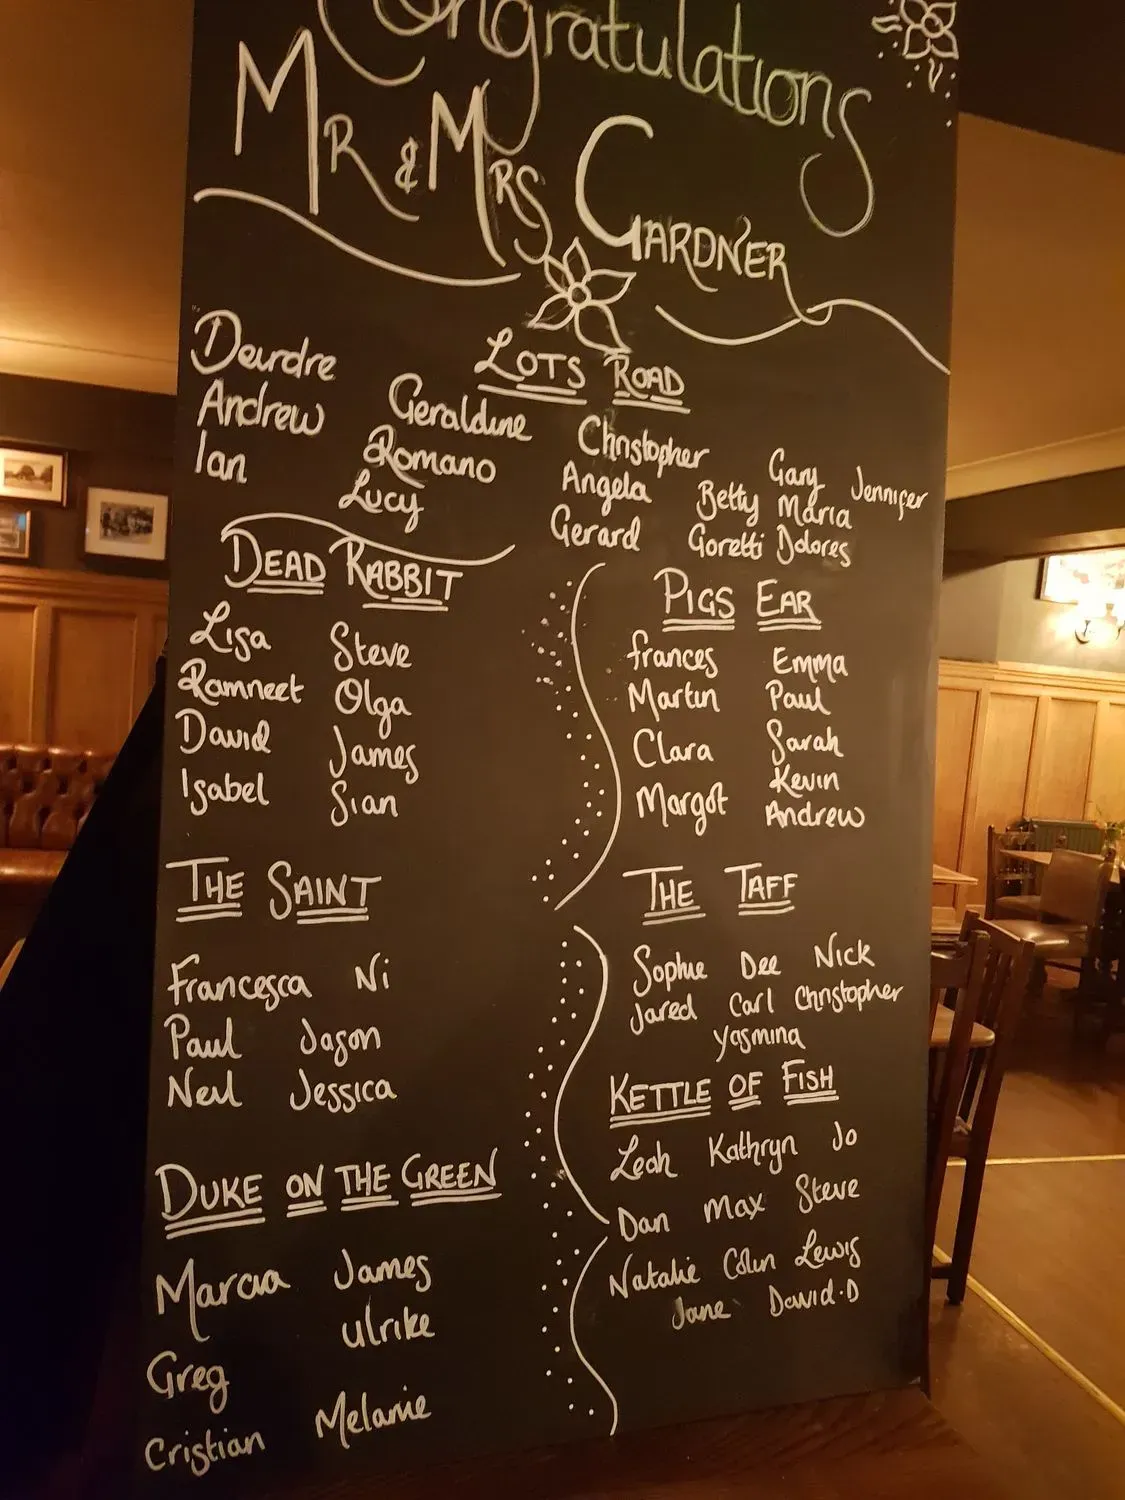 Congratulations
Mr & Mrs Gardner
Lots Road
Deirdre
Andrew Geraldine Christopher Gary Jennifer
Ian Romano Angela Betty Maria
Lucy Gerard Goretti Dolores
Dead Rabbit
Lisa Steve
Ramneet Olga
David James
Isabel Sian
Pigs Ear
Frances Emma
Martin Paul
Clara Sarah
Margot Kevin
Andrew
The Saint
Francesca Ni
Paul Jason
Neil Jessica
The Taff
Sophie Dee Nick
Jared Carl Christopher
Yasmina
Duke on the Green
Marcia James
Ulrike
Greg
Cristian Melanie
Kettle of Fish
Leah Kathryn Jo
Dan Max Steve
Natalie Colin Lewis
Jane David.D